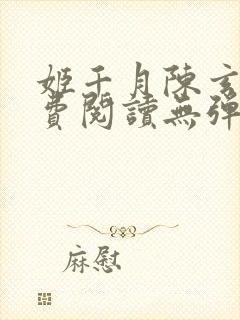 姬千月陳玄
費閱讀無彈
麻慰